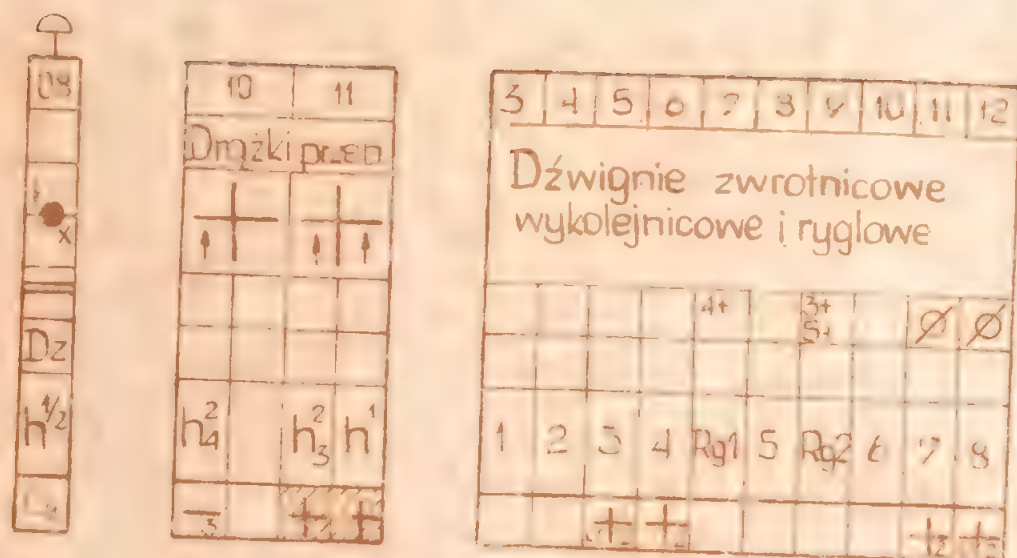 10 11
Drążki przeb
h²₄ h²₃ h¹
3 4 5 6 7 8 9 10 11 12
Dźwignie zwrotnicowe
wykolejnicowe i ryglowe
4+ 3+
5+
Ø Ø
1 2 3 4 Rg1 5 Rg2 6 7 8
x
Dz
h¹/²